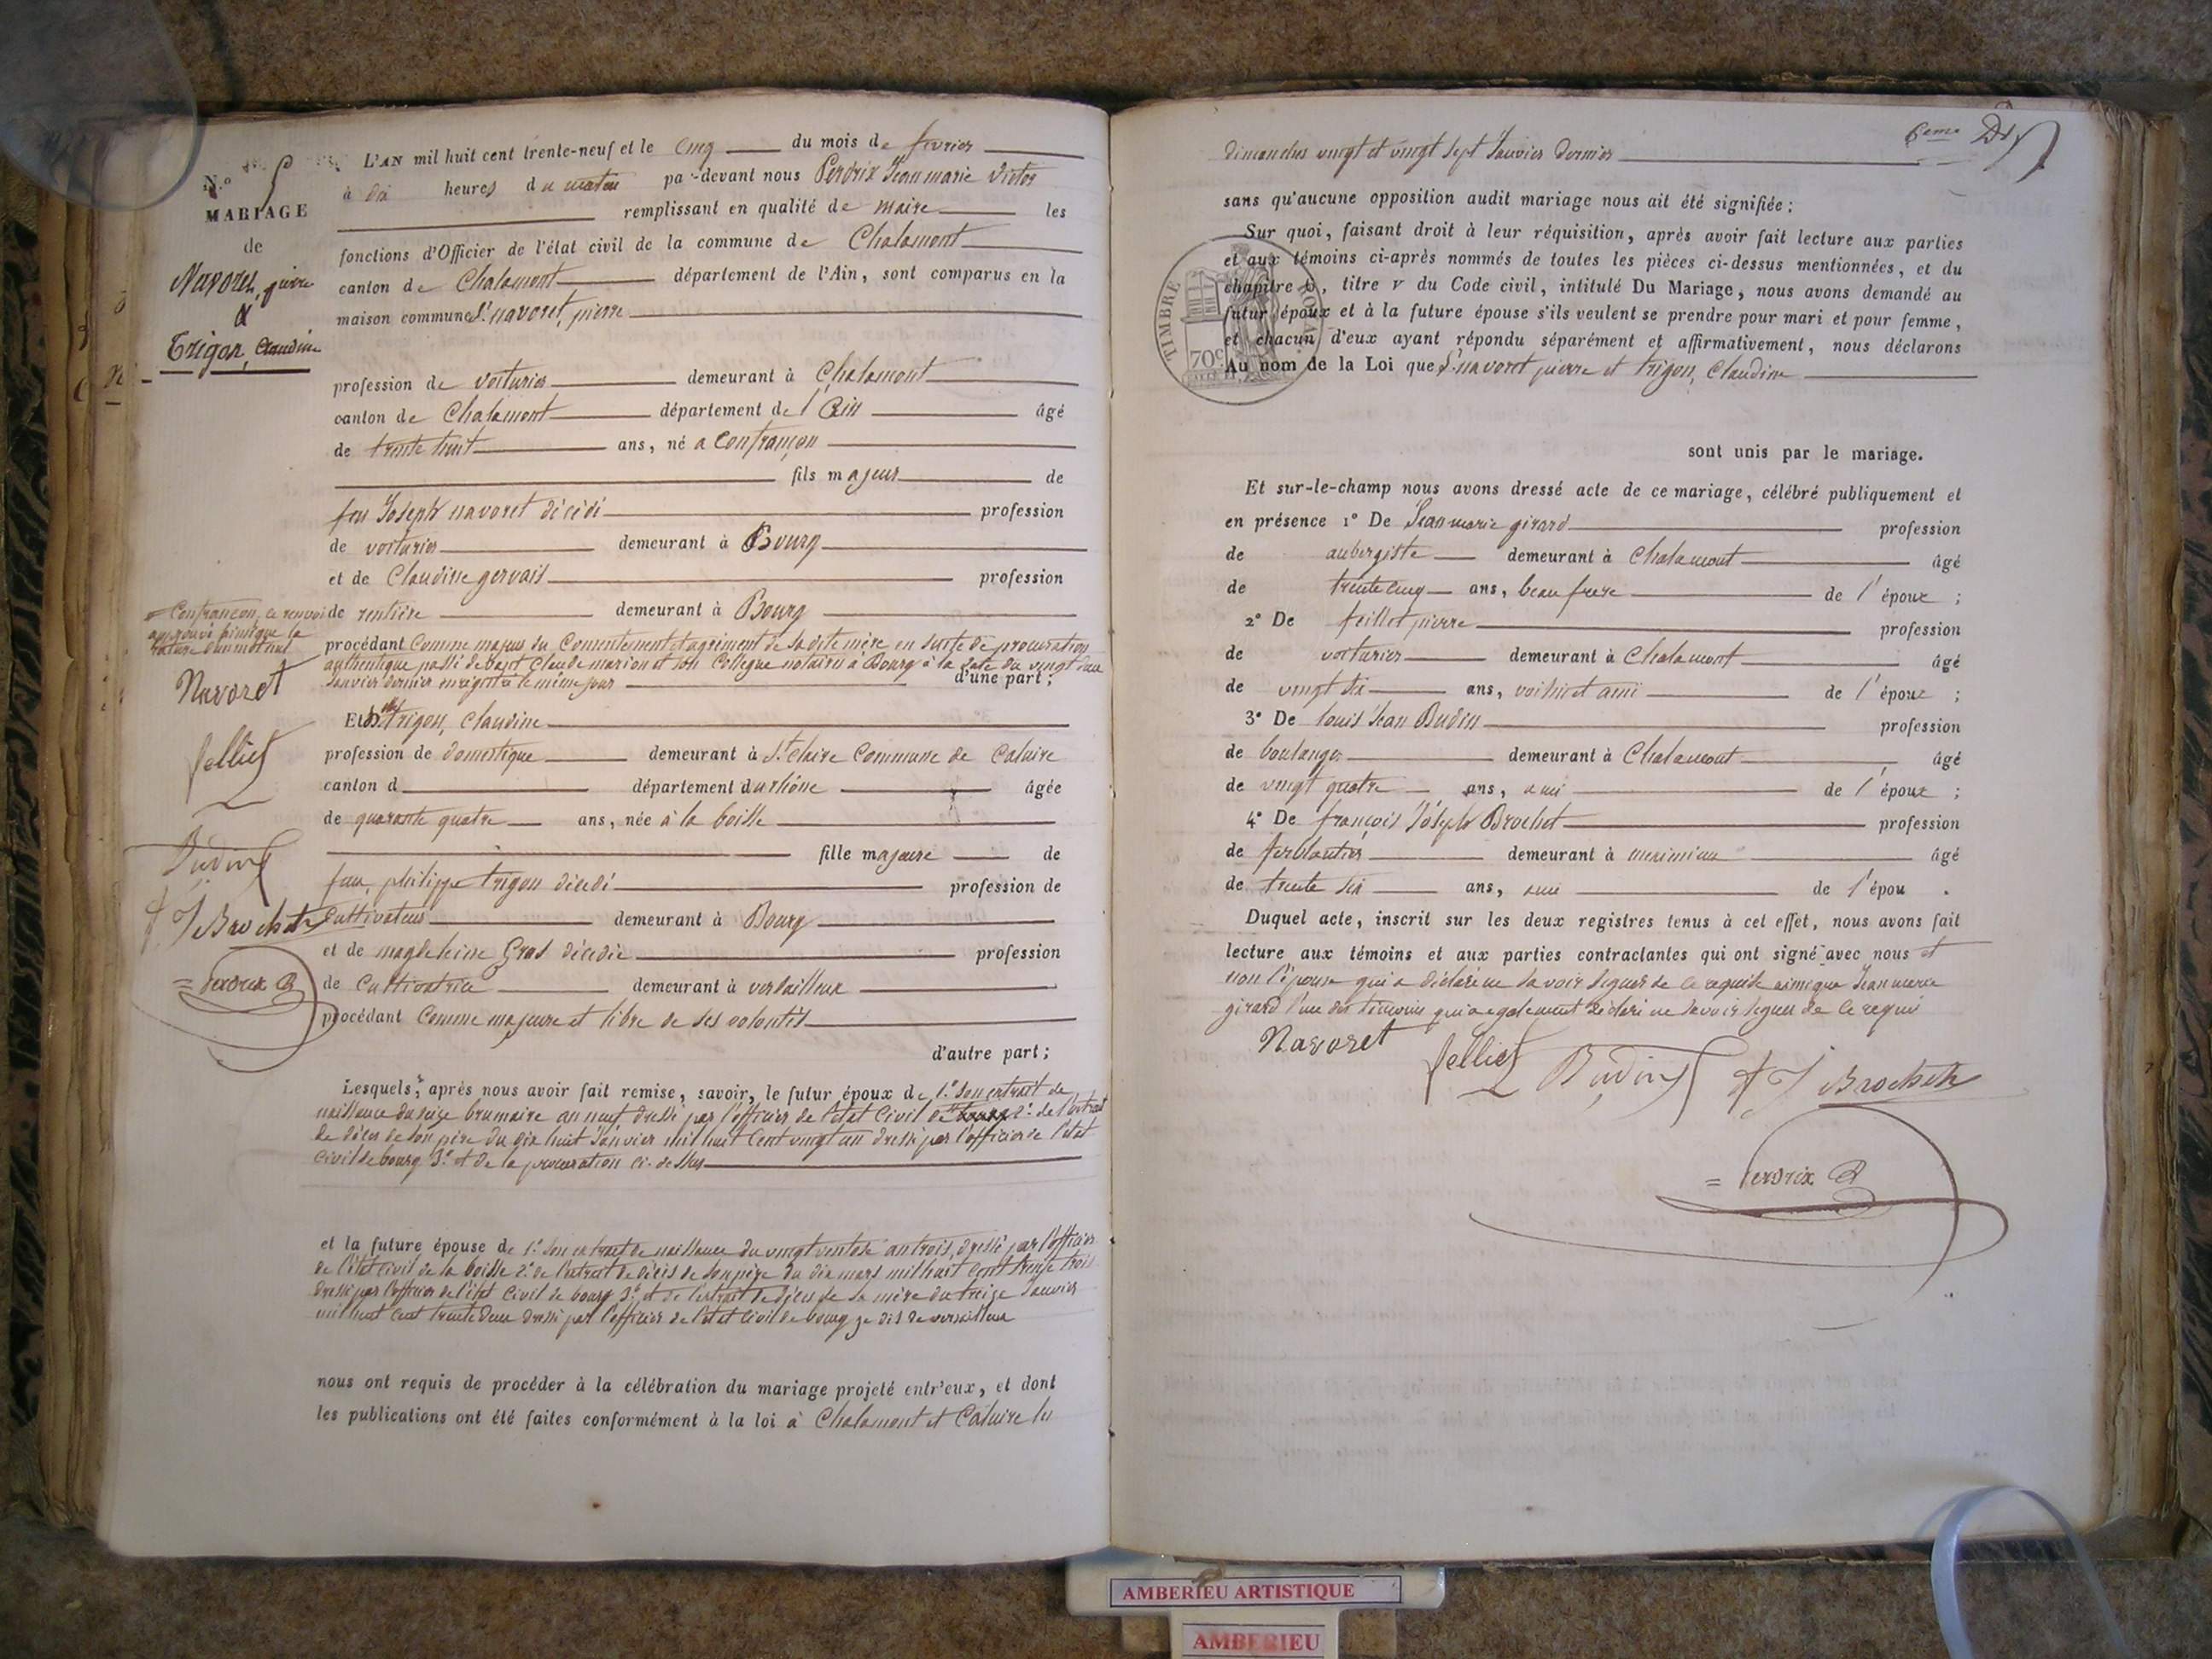 N.º 5
MARIAGE
de
Navoret, pierre
&
Trigon, Claudine
L'AN mil huit cent trente-neuf et le cinq du mois de fevrier
à dix heures du matin par-devant nous Perdrix Jean marie Victor
remplissant en qualité de maire les
fonctions d'Officier de l'état civil de la commune de Chalamont
canton de Chalamont département de l'Ain, sont comparus en la
maison commune S.r navoret, pierre
profession de voiturier demeurant à Chalamont
canton de Chalamont département de l'Ain âgé
de trente huit ans, né a Confrançon
fils majeur de
feu Joseph navoret décédé profession
de voiturier demeurant à Bourg
et de Claudine gervais profession
de rentière demeurant à Bourg
procédant Comme majeur du Consentement et agrément de sa dite mère en suite de procuration
authentique passé devant Claude marion et son Collègue notaires a Bourg à la date du vingt deux
Janvier dernier enregistré le même jour d'une part;
= Confrançon, ce renvoi
approuvé ainsi que la
rature d'un mot nul
Navoret
felliet
Budin
f J Brochet
= Perdrix
Et D.lle trigon, Claudine
profession de domestique demeurant à S.t Claire Commune de Caluire
canton d département du rhône âgée
de quarante quatre ans, née à la boisse
fille majeure de
feu, philippe trigon décédé profession de
Cultivateur demeurant à Bourg
et de magdeleine Gras décédée profession
de Cultivatrice demeurant à versailleux
procédant Comme majeure et libre de ses volontés
d'autre part;
Lesquels, après nous avoir fait remise, savoir, le futur époux de 1.º Son extrait de
naissance du seize brumaire an neuf dressé par l'officier de l'état Civil de bourg 2.º de l'extrait
de décès de son père du dix huit Janvier mil huit Cent vingt un dressé par l'officier de l'état
Civil de bourg 3.º et de la procuration ci-dessus
et la future épouse de 1.º Son extrait de naissance du vingt ventose an trois, dressé par l'officier
de l'état Civil de la boisse 2.º de l'extrait de décès de son père du dix mars mil huit Cent trente trois
dressé par l'officier de l'état Civil de bourg 3.º et de l'extrait de décès de sa mère du treize Janvier
mil huit Cent trente deux dressé par l'officier de l'état Civil de bourg je dis de versailleux
nous ont requis de procéder à la célébration du mariage projeté entr'eux, et dont
les publications ont été faites conformément à la loi à Chalamont et Caluire les
6eme
dimanches vingt et vingt sept Janvier dernier
sans qu'aucune opposition audit mariage nous ait été signifiée;
Sur quoi, faisant droit à leur réquisition, après avoir fait lecture aux parties
et aux témoins ci-après nommés de toutes les pièces ci-dessus mentionnées, et du
chapitre 6, titre v du Code civil, intitulé Du Mariage, nous avons demandé au
futur époux et à la future épouse s'ils veulent se prendre pour mari et pour femme,
et chacun d'eux ayant répondu séparément et affirmativement, nous déclarons
Au nom de la Loi que S.r navoret pierre et trigon, Claudine
TIMBRE ROYAL
70c
sont unis par le mariage.
Et sur-le-champ nous avons dressé acte de ce mariage, célébré publiquement et
en présence 1º De Jean marie girard profession
de aubergiste demeurant à Chalamont âgé
de trente cinq ans, beau frere de l'époux;
2º De feillet pierre profession
de voiturier demeurant à Chalamont âgé
de vingt six ans, voisin et ami de l'époux;
3º De louis Jean Budin profession
de boulanger demeurant à Chalamont âgé
de vingt quatre ans, ami de l'époux;
4º De françois Joseph Brochet profession
de ferblantier demeurant à meximieux âgé
de trente six ans, ami de l'épou .
Duquel acte, inscrit sur les deux registres tenus à cet effet, nous avons fait
lecture aux témoins et aux parties contractantes qui ont signé avec nous et
non l'épouse qui a déclaré ne savoir signer de ce requise ainsi que Jean marie
girard l'un des témoins qui a egalement déclaré ne savoir signer de ce requis
Navoret felliet Budin f J Brochet
= Perdrix
AMBERIEU ARTISTIQUE
AMBERIEU